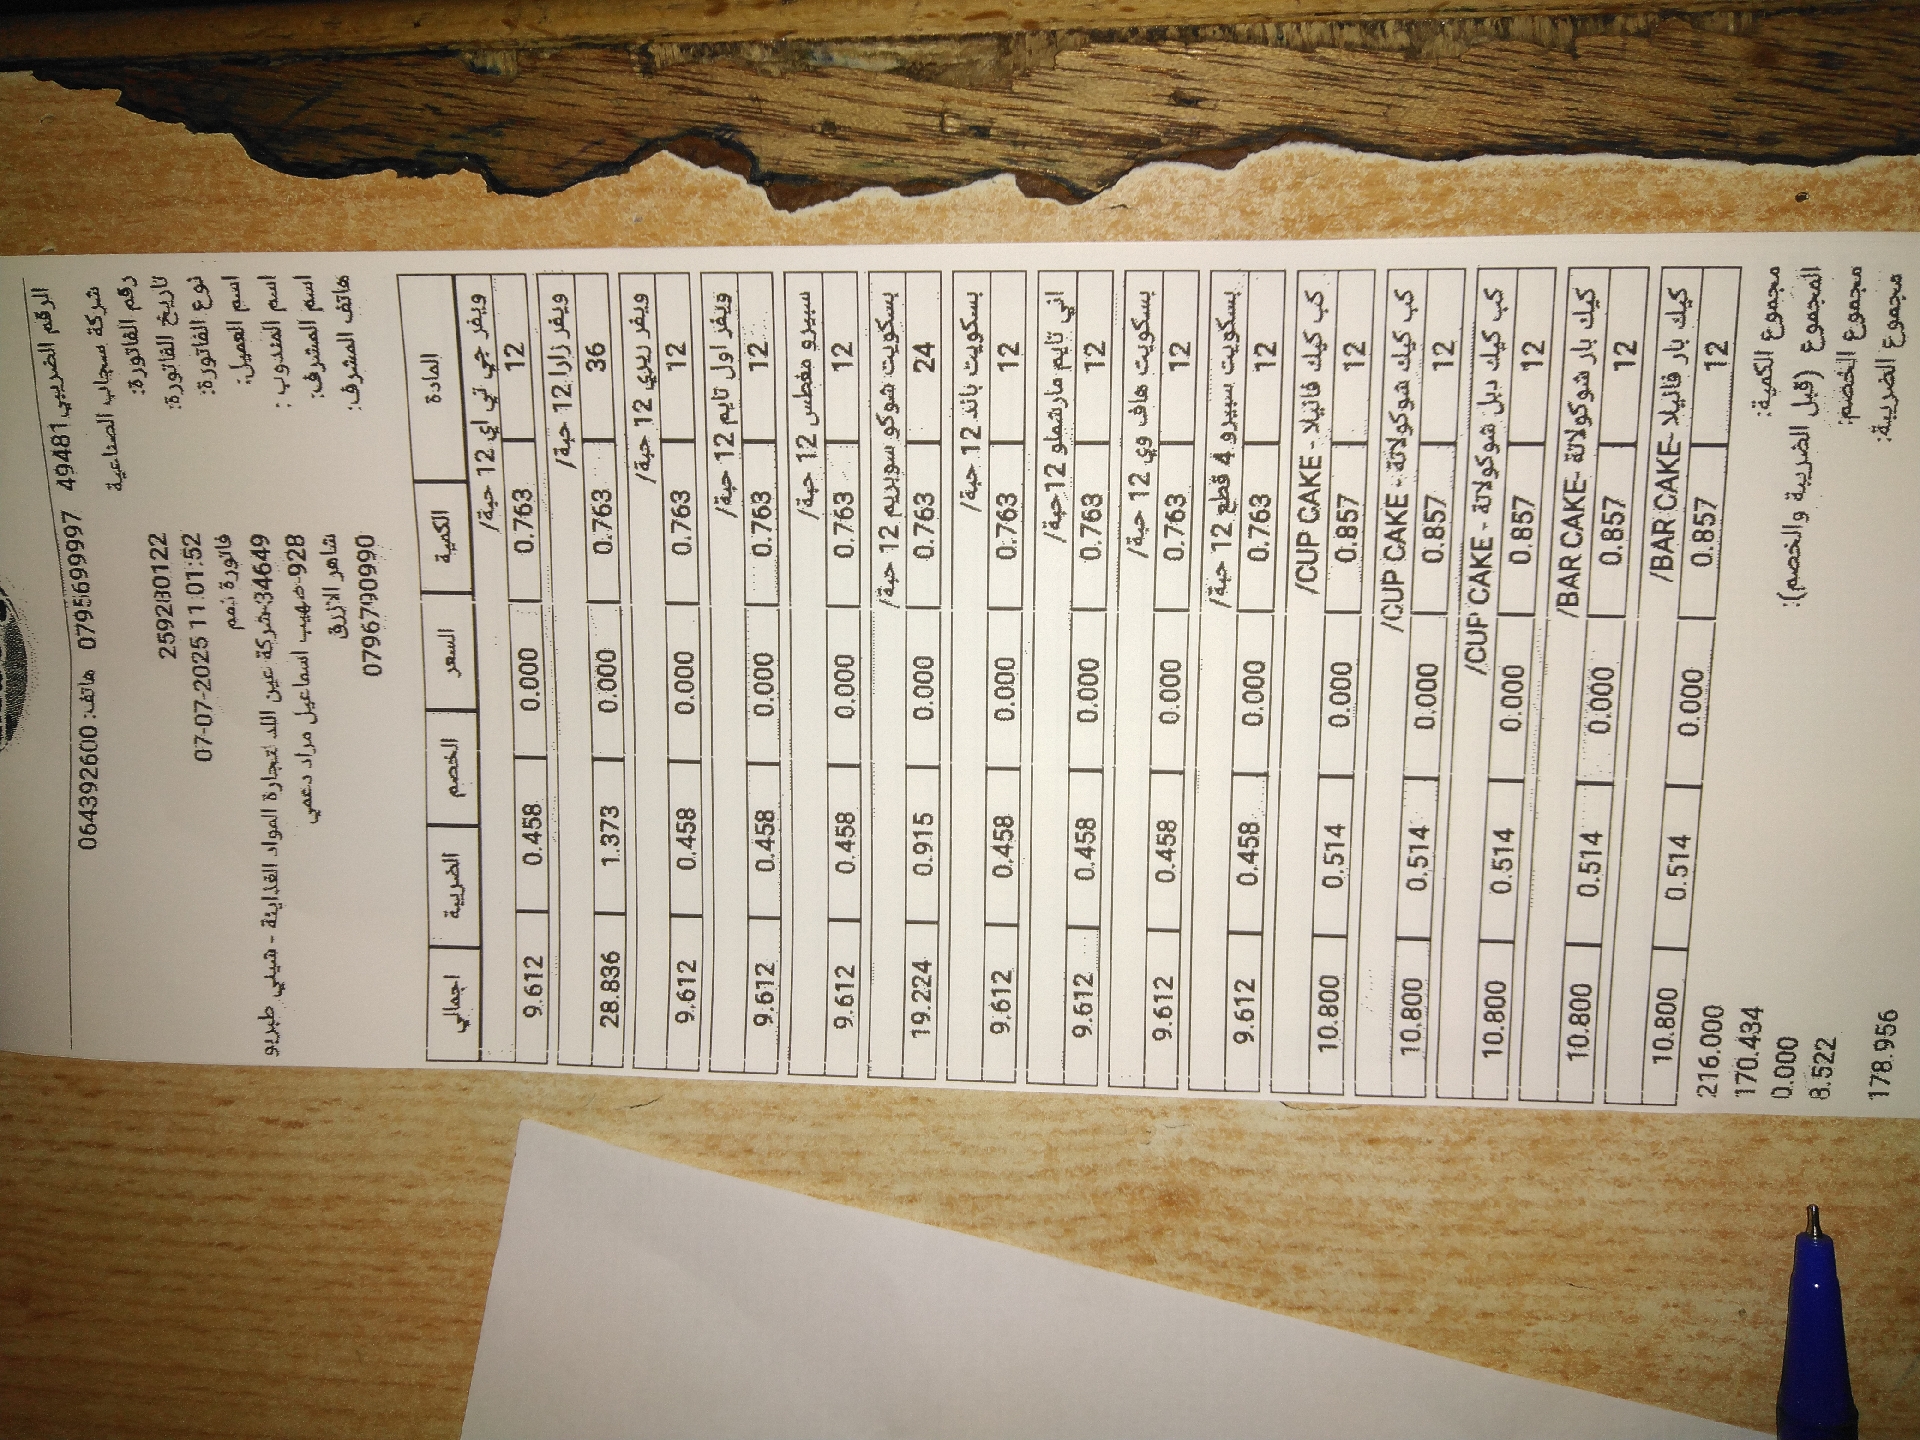 الرقم الضريبي 49481 هاتف: 0795699997
0643926000
شركة سنجاب الصناعية
رقم الفاتورة: 259280122
تاريخ الفاتورة: 07-07-2025 11:01:52
نوع الفاتورة: فاتورة ذمم
اسم العميل: 34649-شركة عين اللد لتجارة المواد الغذائية - شيلي طبربو
اسم المندوب : 928-صهيب اسماعيل مراد دعمي
اسم المشرف: شاهر الازرق
هاتف المشرف: 0796790990
المادة الكمية السعر الخصم الضريبة اجمالي
ويفر جي تي اي 12 حبة/
12 0.763 0.000 0.458 9.612
ويفر زارا 12 حبة/
36 0.763 0.000 1.373 28.836
ويفر ريري 12 حبة/
12 0.763 0.000 0.458 9.612
ويفر اول تايم 12 حبة/
12 0.763 0.000 0.458 9.612
سبيرو مغطس 12 حبة/
12 0.763 0.000 0.458 9.612
بسكويت شوكو سوبريم 12 حبة/
24 0.763 0.000 0.915 19.224
بسكويت باند 12 حبة/
12 0.763 0.000 0.458 9.612
اني تايم مارشملو 12حبة/
12 0.763 0.000 0.458 9.612
بسكويت هاف وي 12 حبة/
12 0.763 0.000 0.458 9.612
بسكويت سبيرو 4 قطع 12 حبة/
12 0.763 0.000 0.458 9.612
كب كيك فانيلا - CUP CAKE/
12 0.857 0.000 0.514 10.800
كب كيك شوكولاتة - CUP CAKE/
12 0.857 0.000 0.514 10.800
كب كيك دبل شوكولاتة - CUP CAKE/
12 0.857 0.000 0.514 10.800
كيك بار شوكولاتة -BAR CAKE/
12 0.857 0.000 0.514 10.800
كيك بار فانيلا -BAR CAKE/
12 0.857 0.000 0.514 10.800
مجموع الكمية: 216.000
المجموع (قبل الضريبة والخصم): 170.434
مجموع الخصم: 0.000
مجموع الضريبة: 8.522
178.956